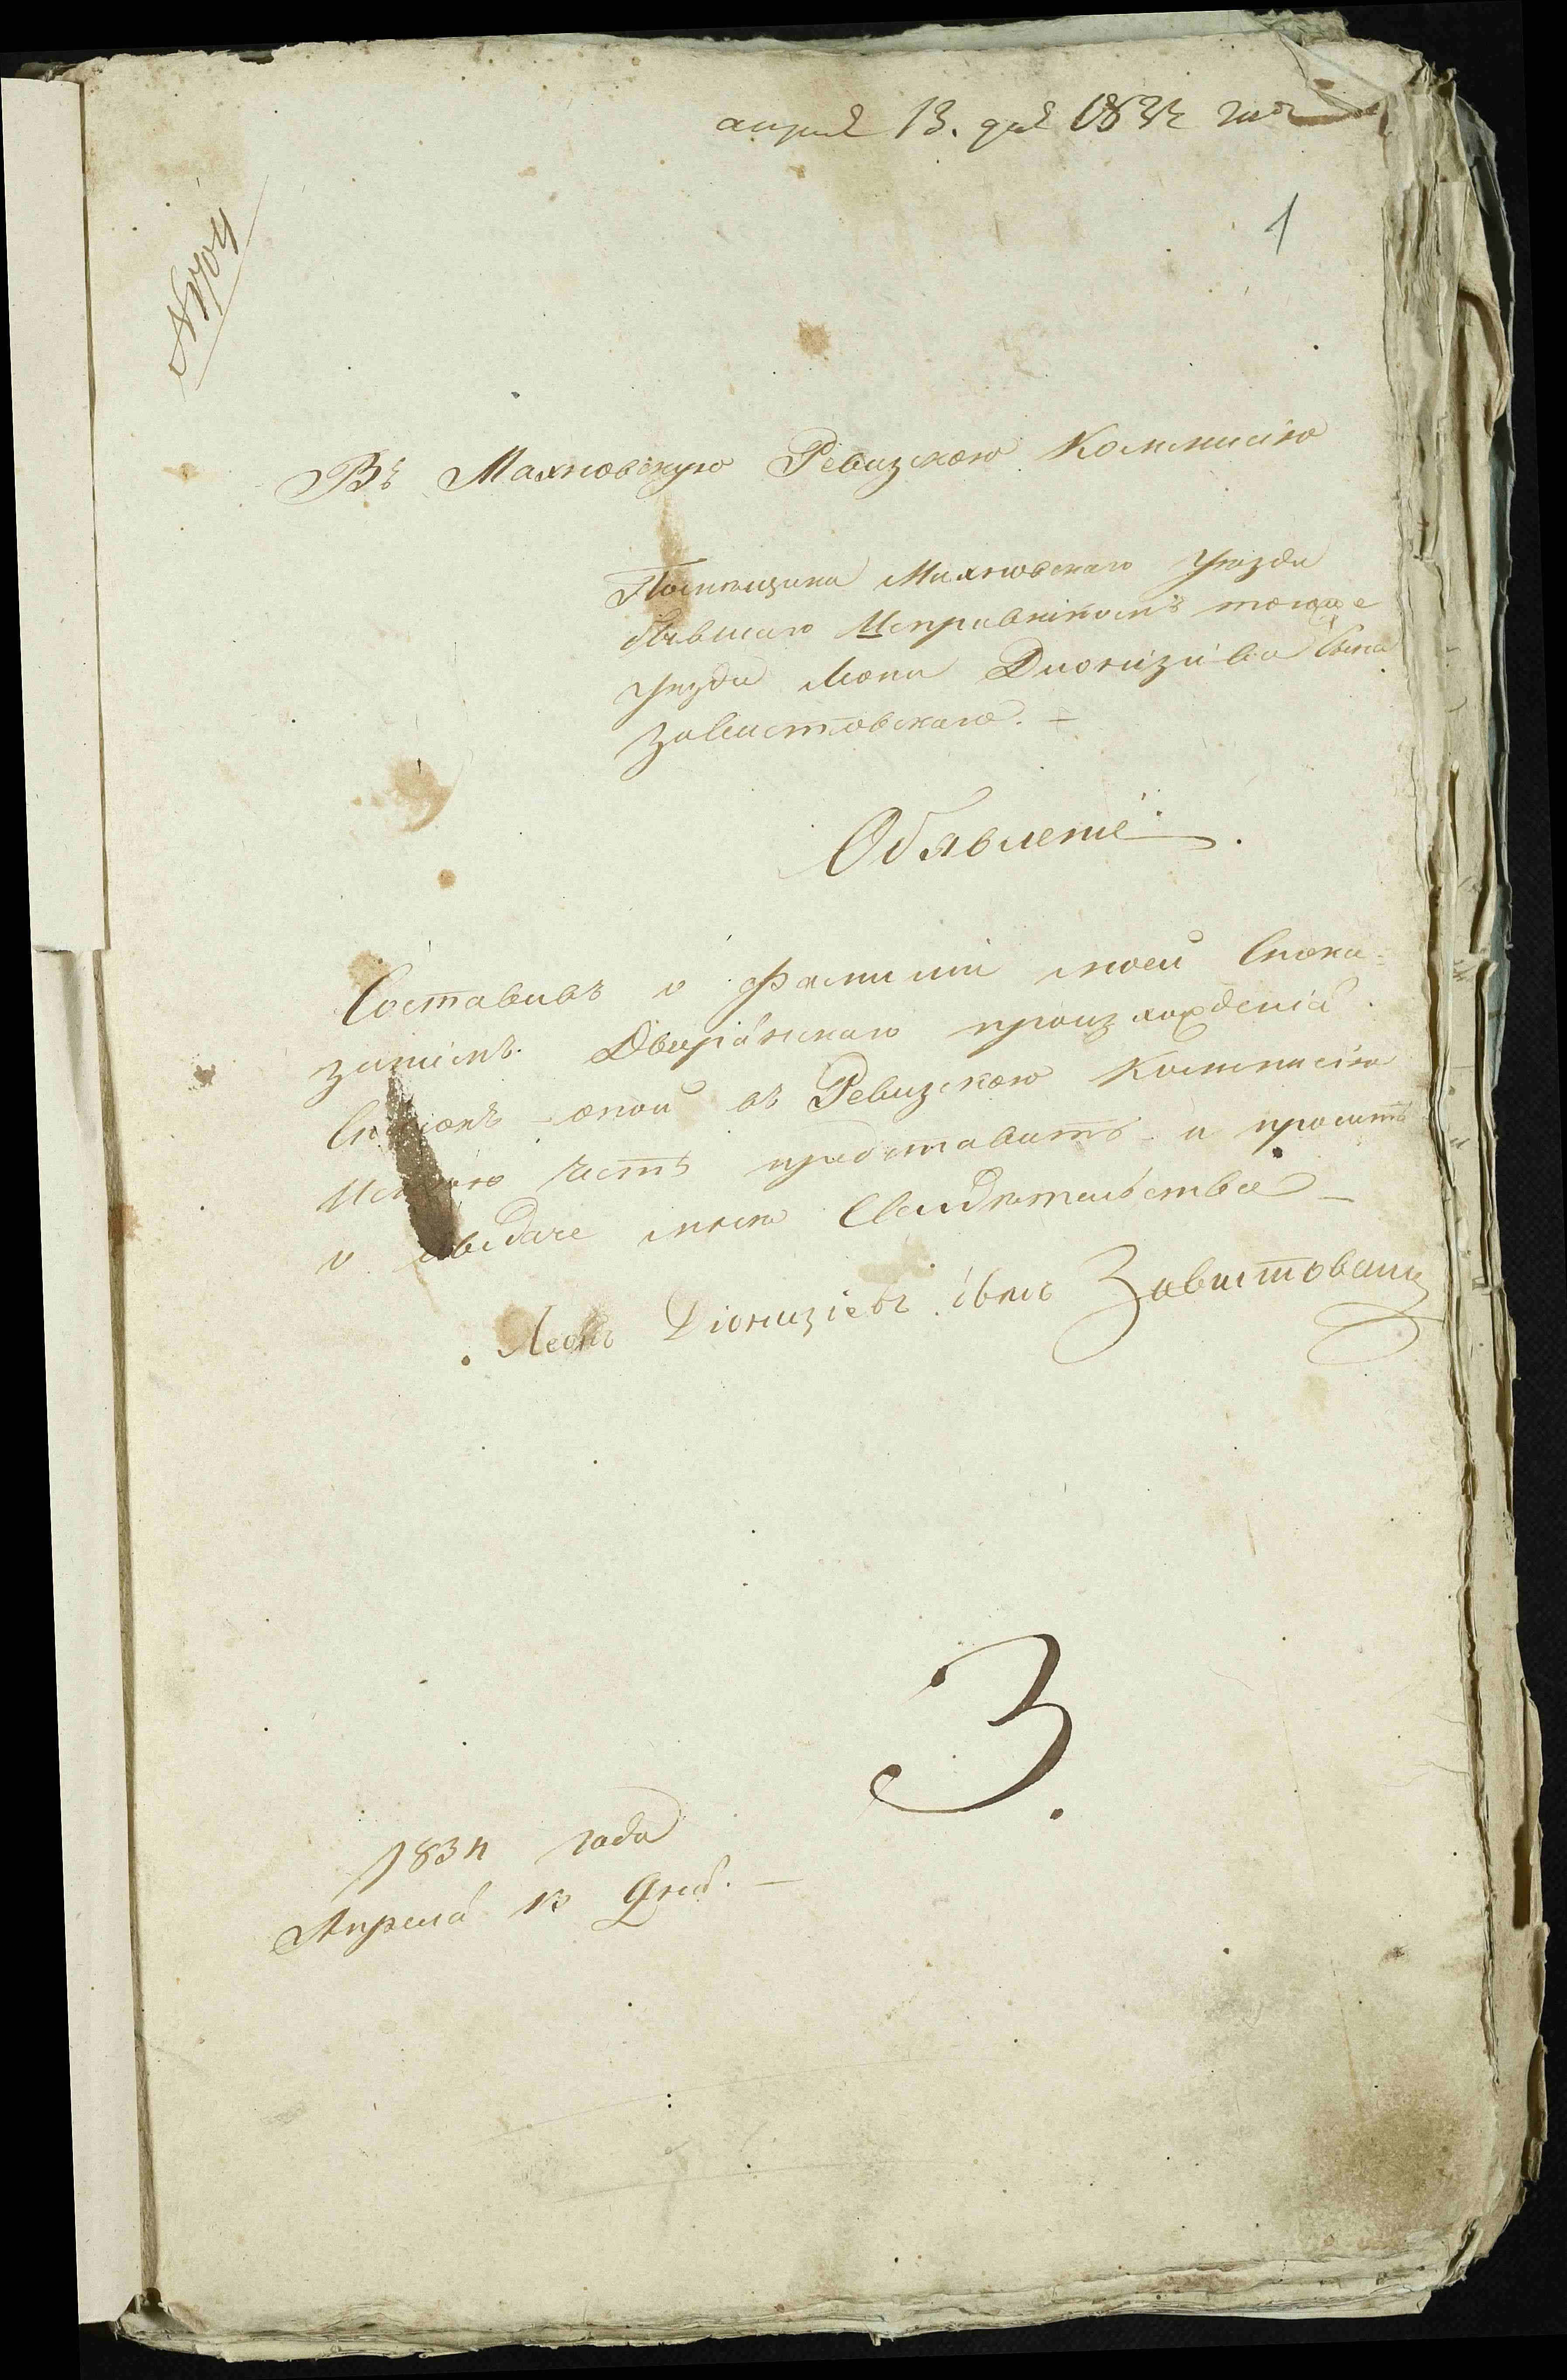 апреля 13. дня 1834 года
1
№ 1704
Въ Махновскую Ревизскою Коммисію
Помѣщика Махновскаго Уѣзда
бывшаго Исправникомъ тогоже
Уѣзда Леона Дионизіева Сына
Завистовскаго. –
Объявленіе.
Составивъ о фамиліи моей Спока-
заніемъ Дворянскаго произхожденія
Списокъ – оной въ Ревизскою Коммисію
честь представить – и просить
о выдаче мнѣ Свидѣтельства –
Леонъ Діонизіевъ сынъ Завистовскій
3.
1834 года
Апреля 13 Дня. –